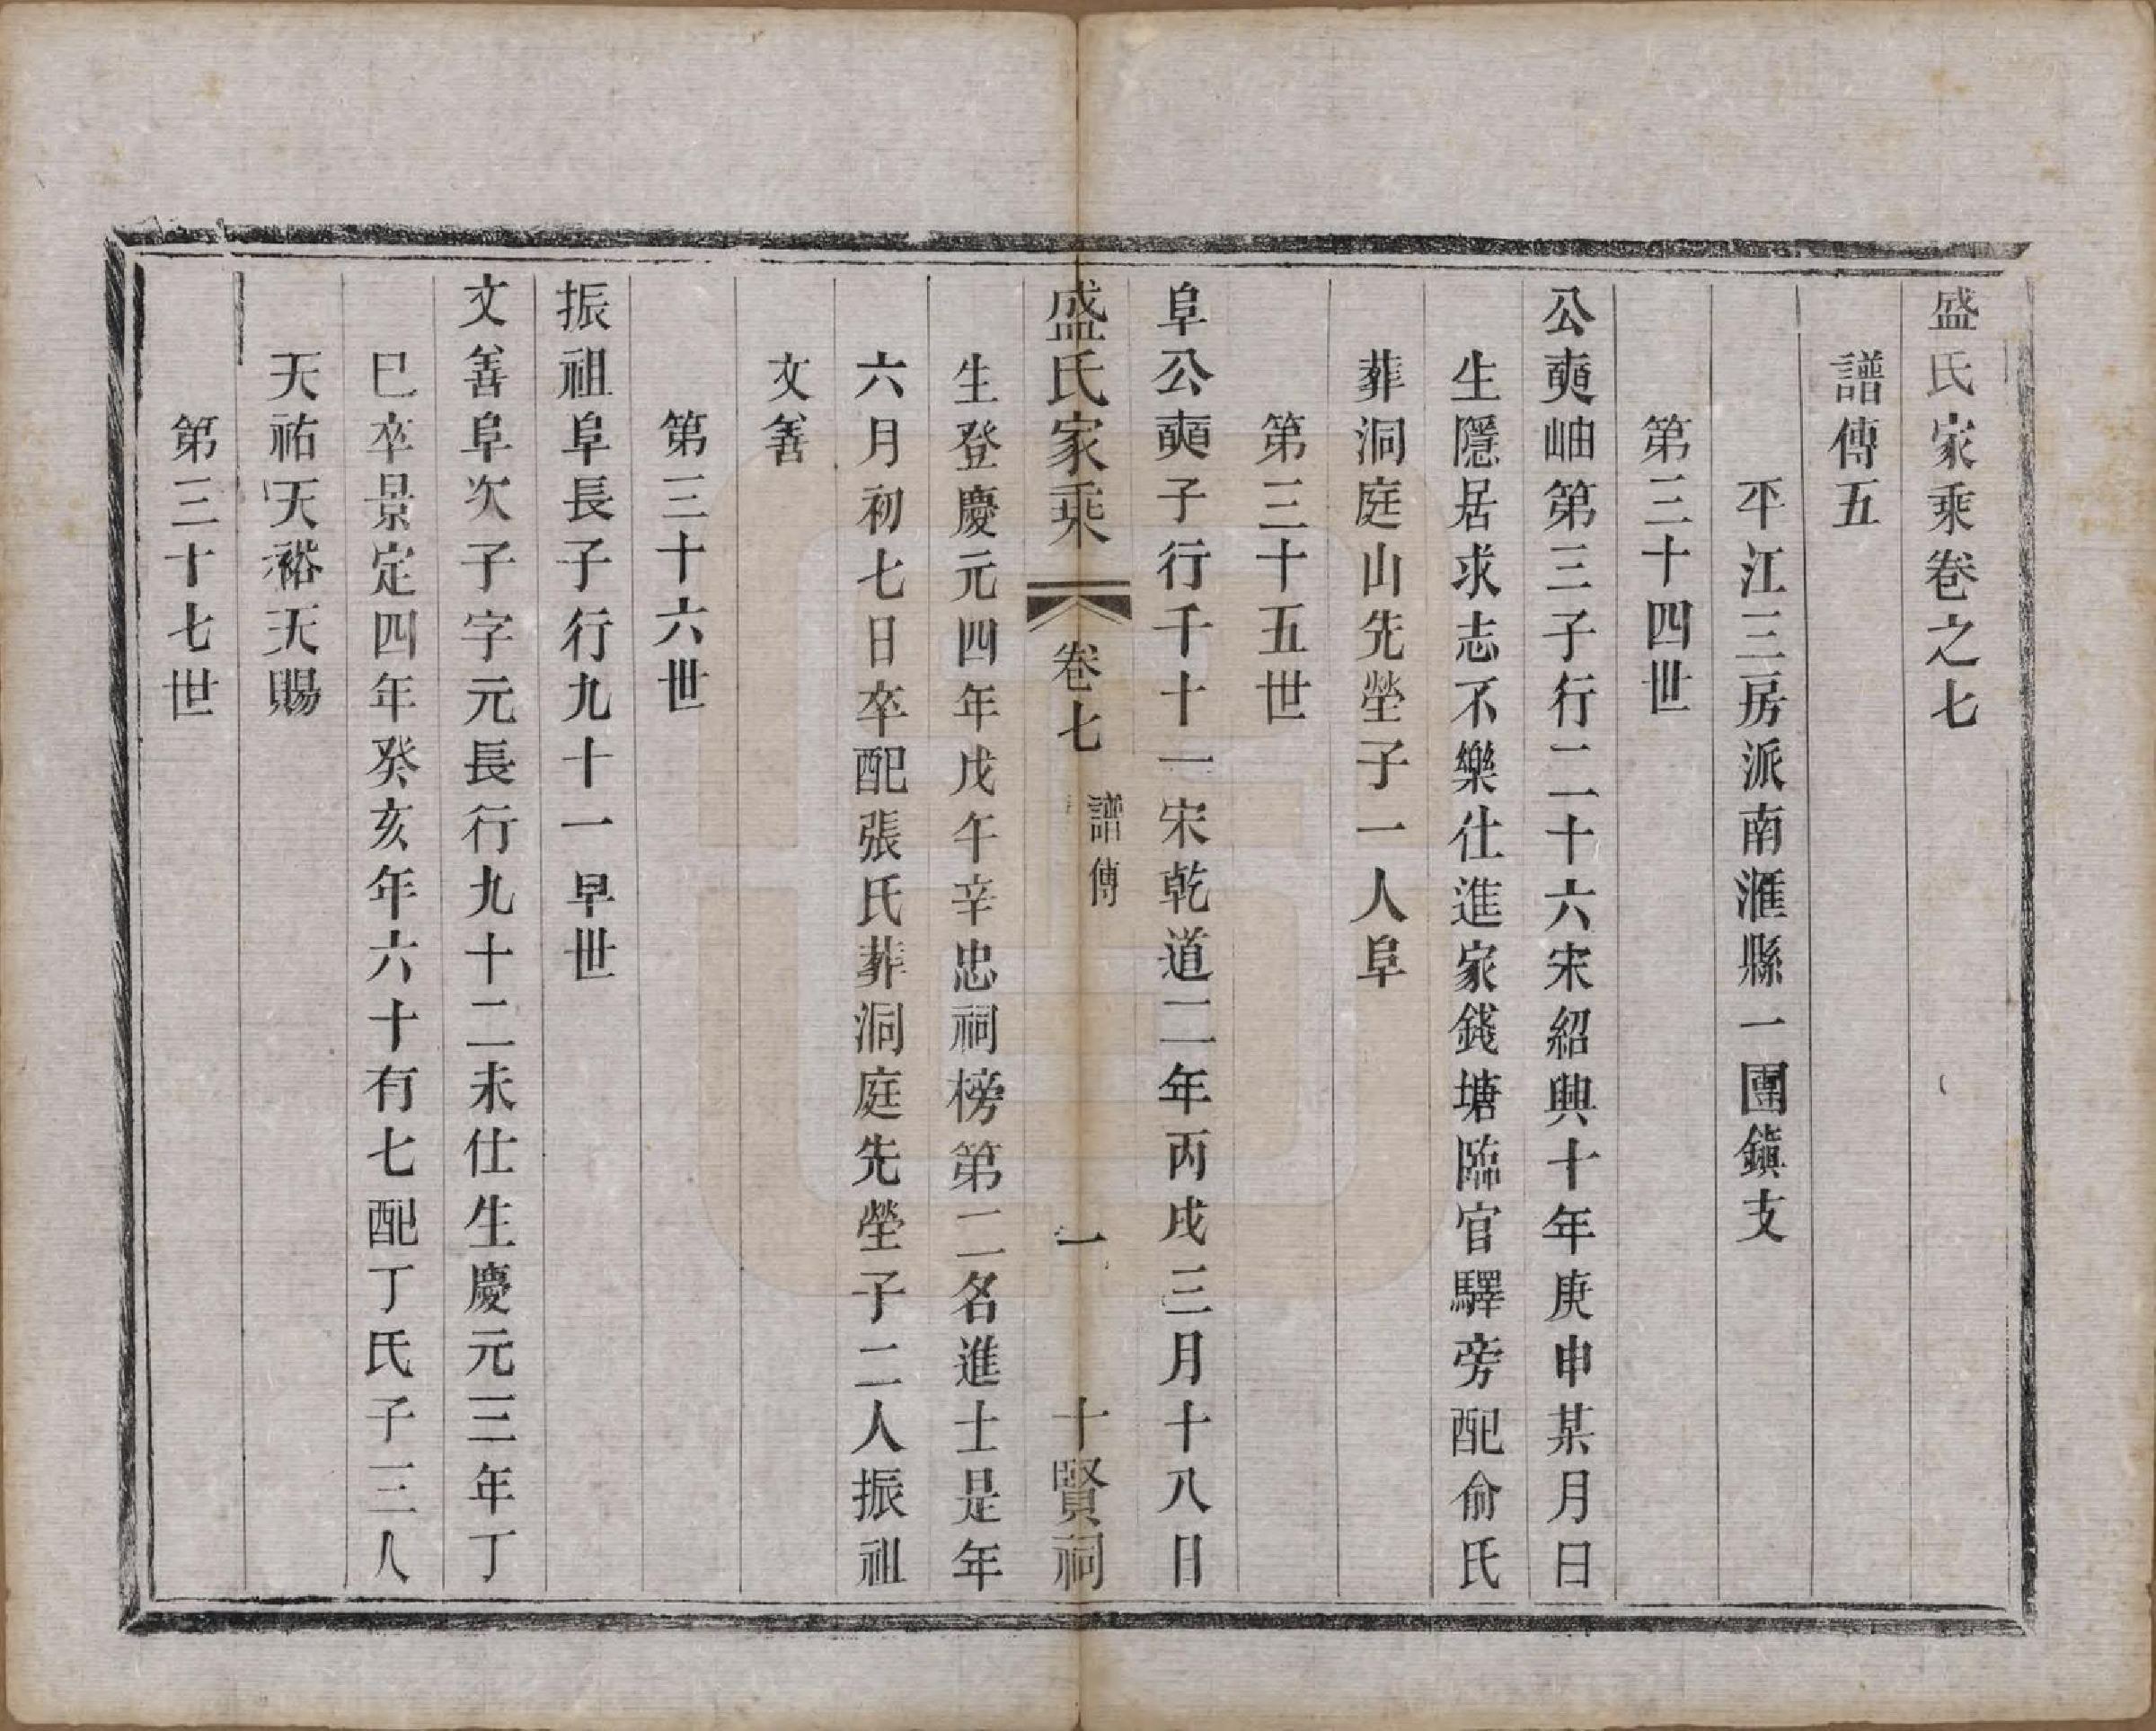 盛氏家乘卷之七
譜傳五
平江三房派南滙縣一團鎭支
第三十四世
公奭岫第三子行二十六宋紹興十年庚申某月日
生隱居求志不樂仕進家錢塘臨官驛旁配俞氏
葬洞庭山先塋子一人阜
第三十五世
阜公奭子行千十一宋乾道二年丙戌三月十八日
盛氏家乘
卷七
譜傳
一
十賢祠
生登慶元四年戊午辛忠祠榜第二名進士是年
六月初七日卒配張氏葬洞庭先塋子二人振祖
文善
第三十六世
振祖阜長子行九十一早世
文善阜次子字元長行九十二未仕生慶元三年丁
巳卒景定四年癸亥年六十有七配丁氏子三人
天祐天裕天賜
第三十七世